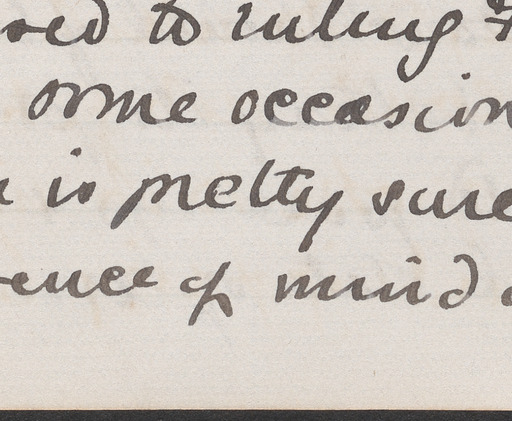 sed to ruling
some occasion
is pretty sure
ence of mind